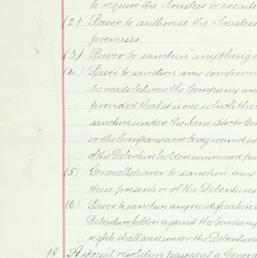 to require the Trustees to execute
(2) Power to authorise the Trustees
premises.
(3) Power to sanction anything
(4) Power to sanction any compromise
be made between the Company and
provided that it is one which the
sanction under the Joint Stock Com
or the Company were being wound up
of the Debenture holders summoned
(5) Generally power to sanction any
these presents or of the Debentures
(6) Power to sanction any modification
Debenture holders against the Company
rights shall arise under the Debentures
18 A special resolution passed at a General